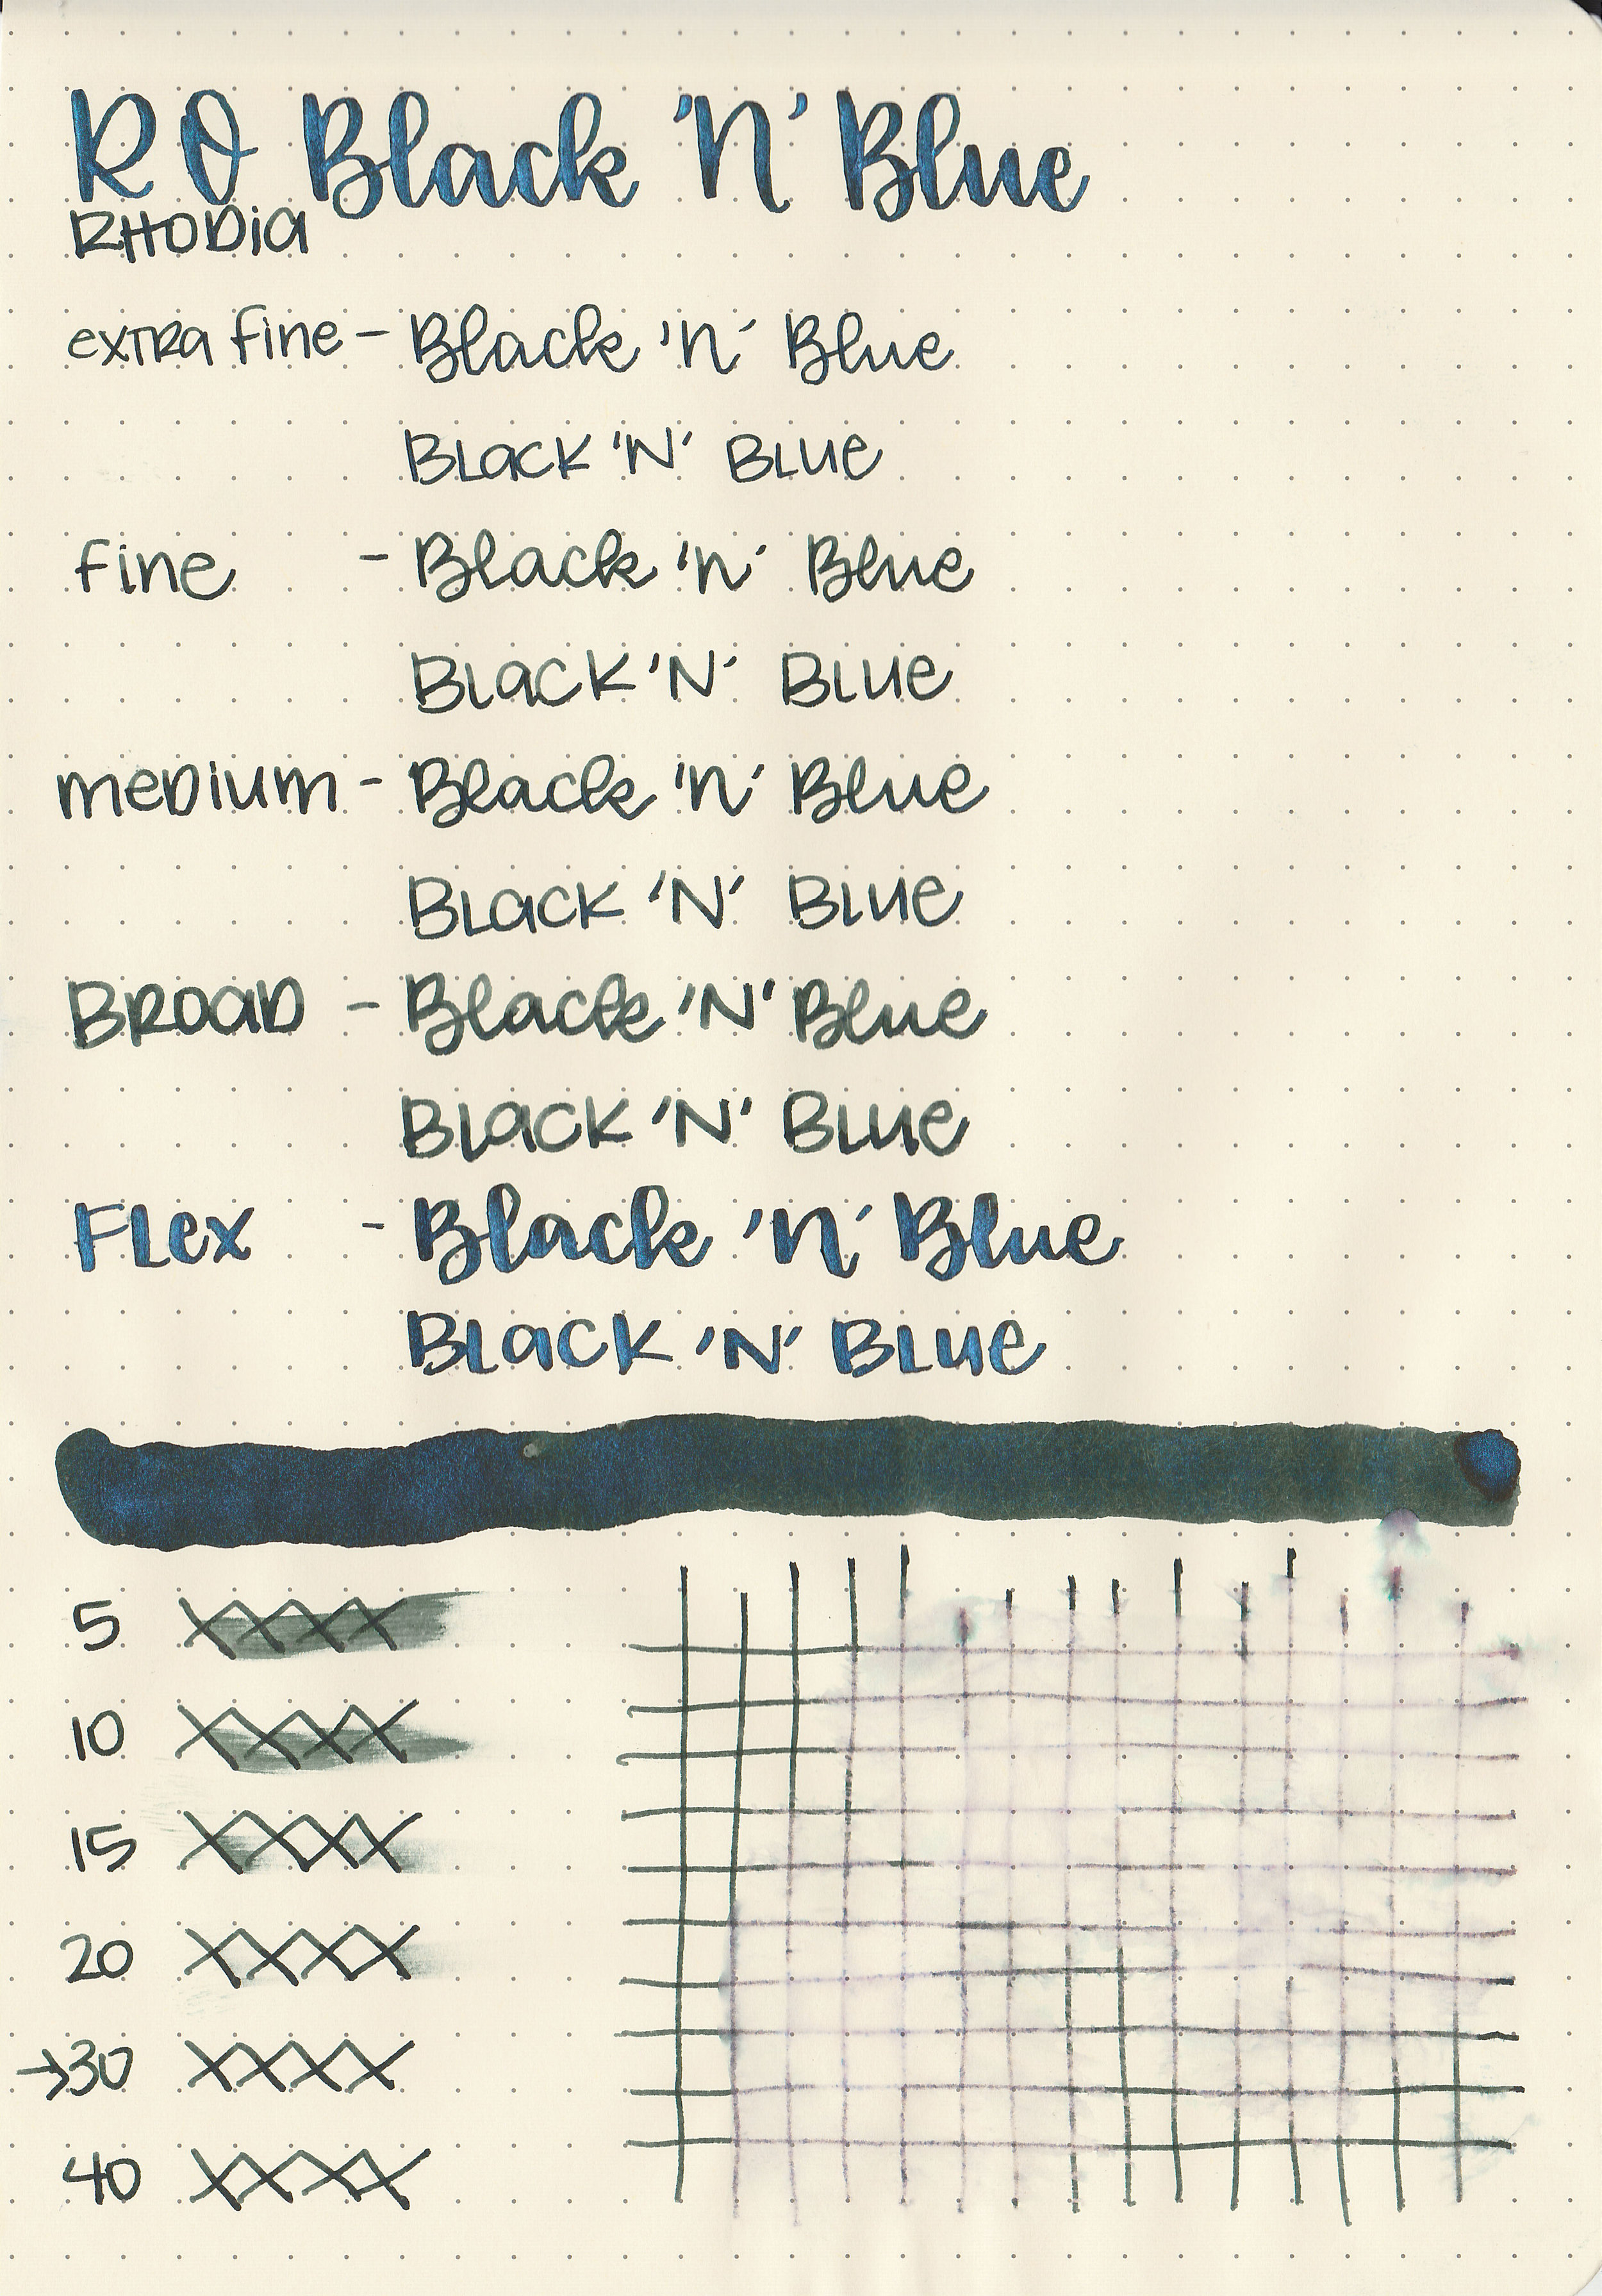 RO Black 'N' Blue
RHODIA
extra fine - Black 'n' Blue
Black 'N' Blue
fine - Black 'n' Blue
Black 'N' Blue
medium - Black 'n' Blue
Black 'N' Blue
Broad - Black 'N' Blue
Black 'N' Blue
Flex - Black 'n' Blue
Black 'N' Blue
5 XXXX
10 XXXX
15 XXXX
20 XXXX
→30 XXXX
40 XXXX